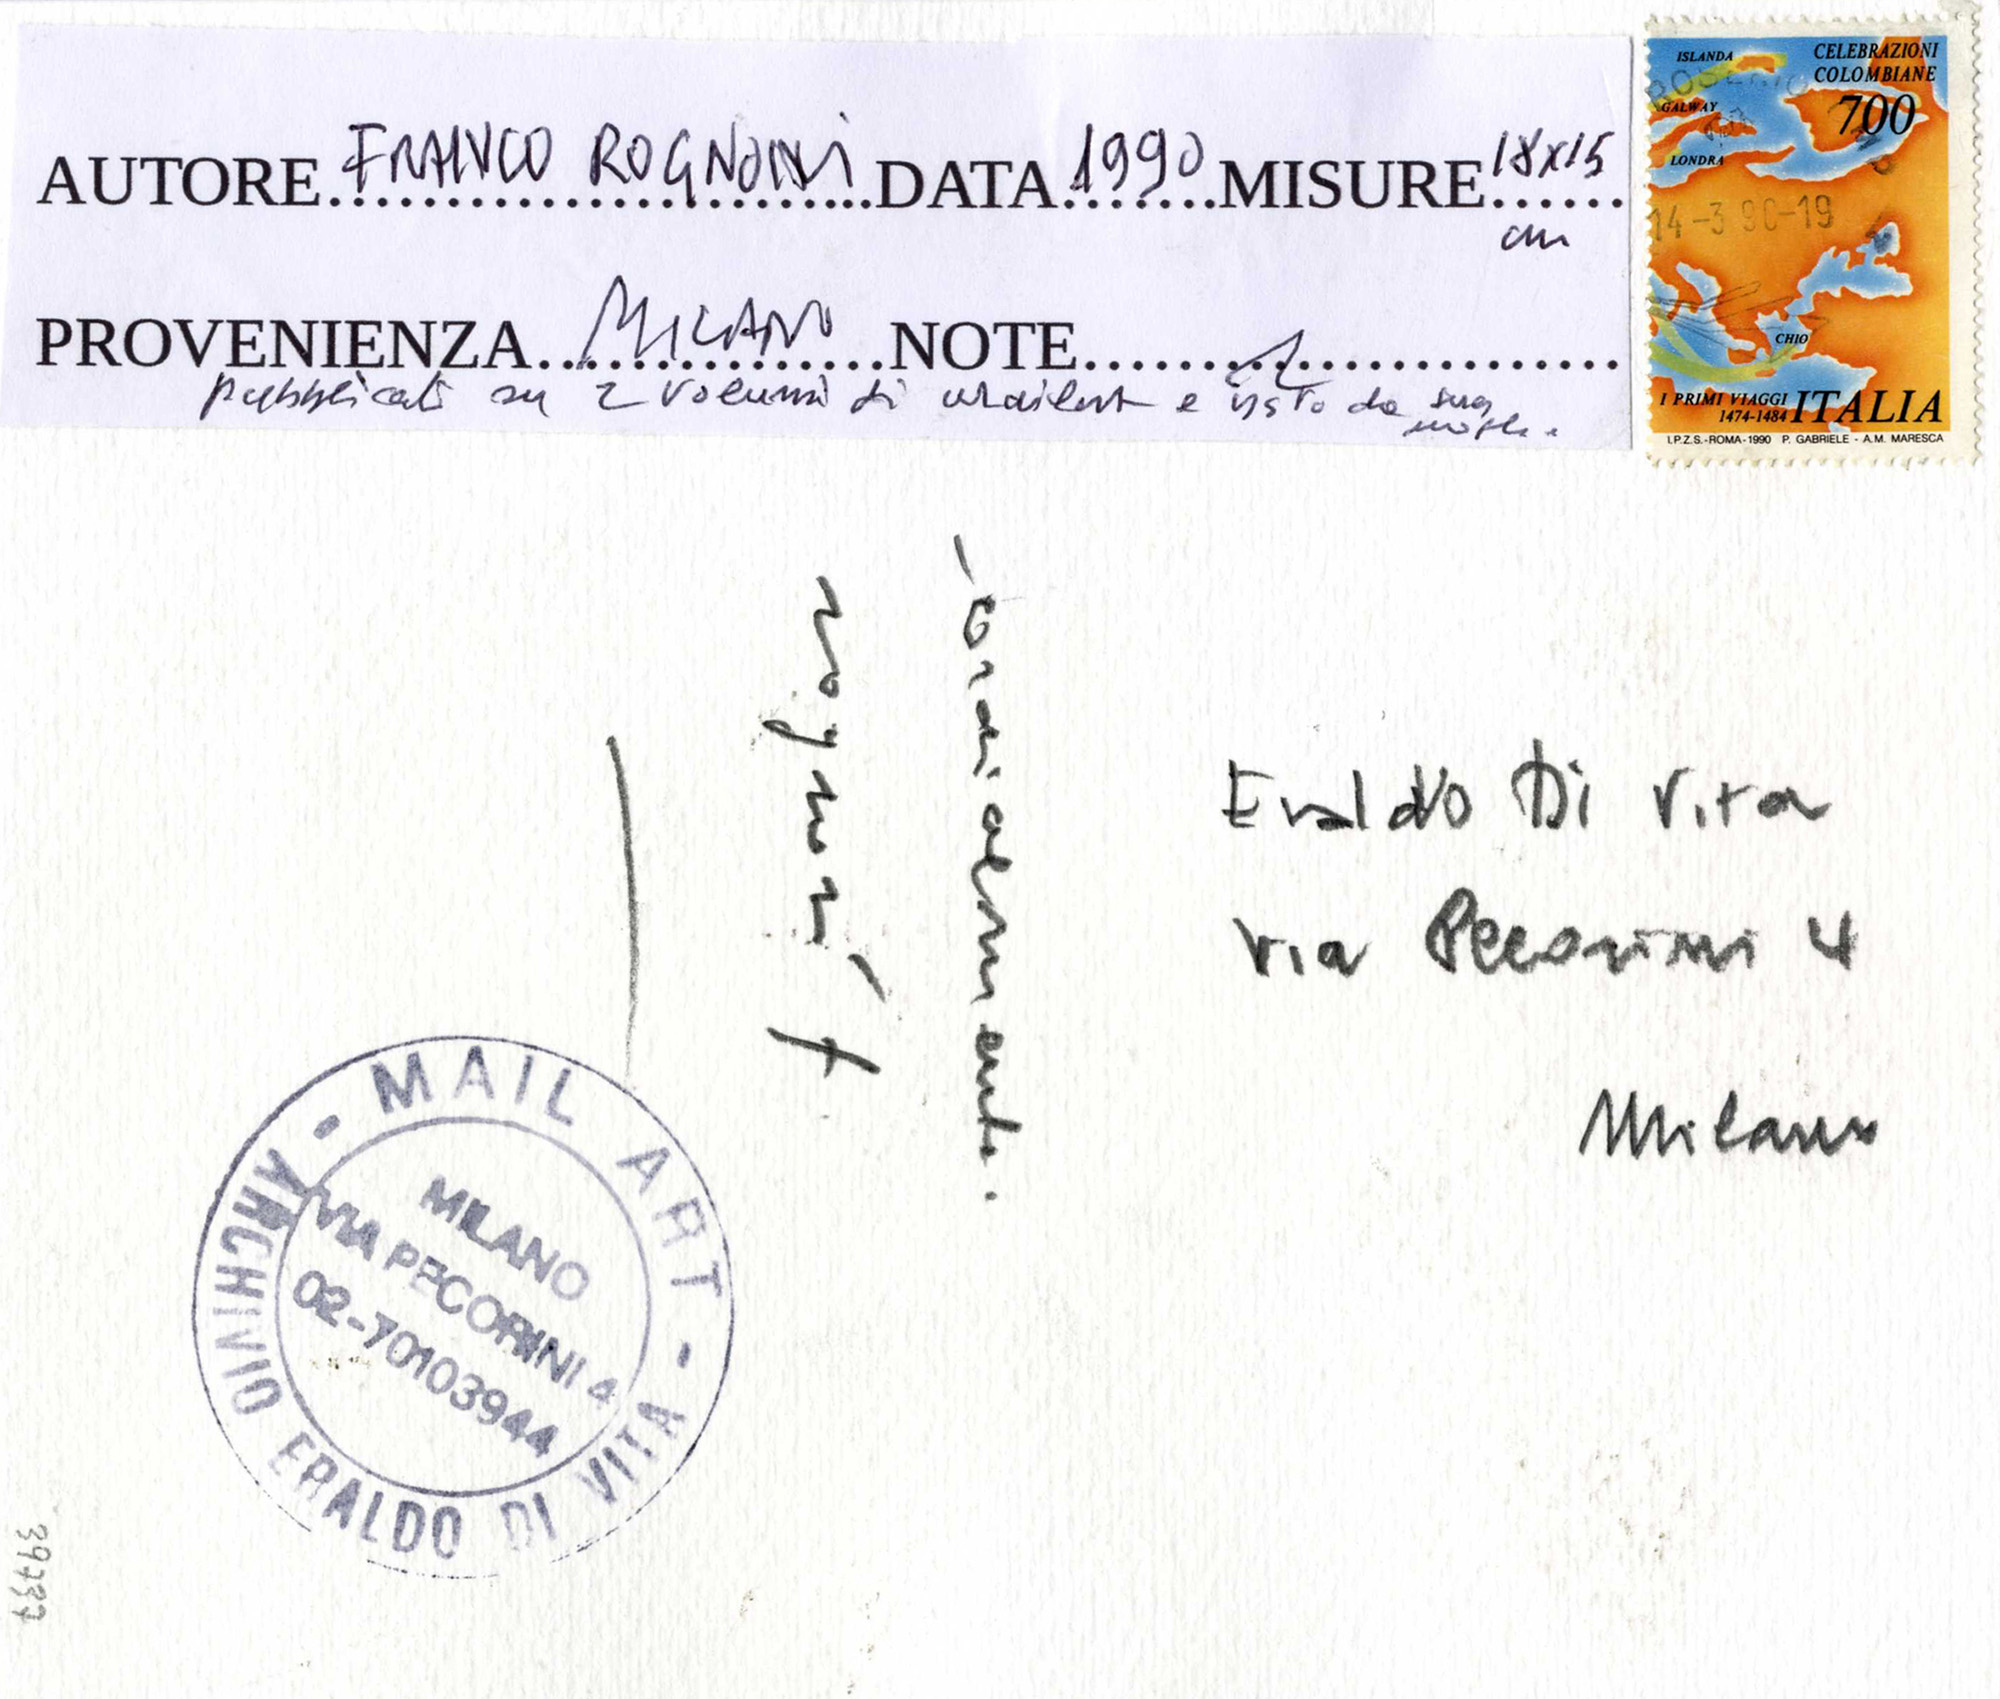 AUTORE FRANCO ROGNONI DATA 1990 MISURE 18x15
cm
PROVENIENZA MILANO NOTE
pubblicati su 2 volumi di mailart e visto da sua
moglie.
ISLANDA
CELEBRAZIONI
COLOMBIANE
GALWAY
700
LONDRA
14-3 90-19
CHIO
I PRIMI VIAGGI
1474-1484 ITALIA
I.P.Z.S.-ROMA-1990 P. GABRIELE - A.M. MARESCA
-cordialmente.
rognoni f.
Eraldo Di Vita
via Pecorini 4
Milano
- MAIL ART -
ARCHIVIO ERALDO DI VITA
MILANO
VIA PECORINI 4
02-70103944
39737